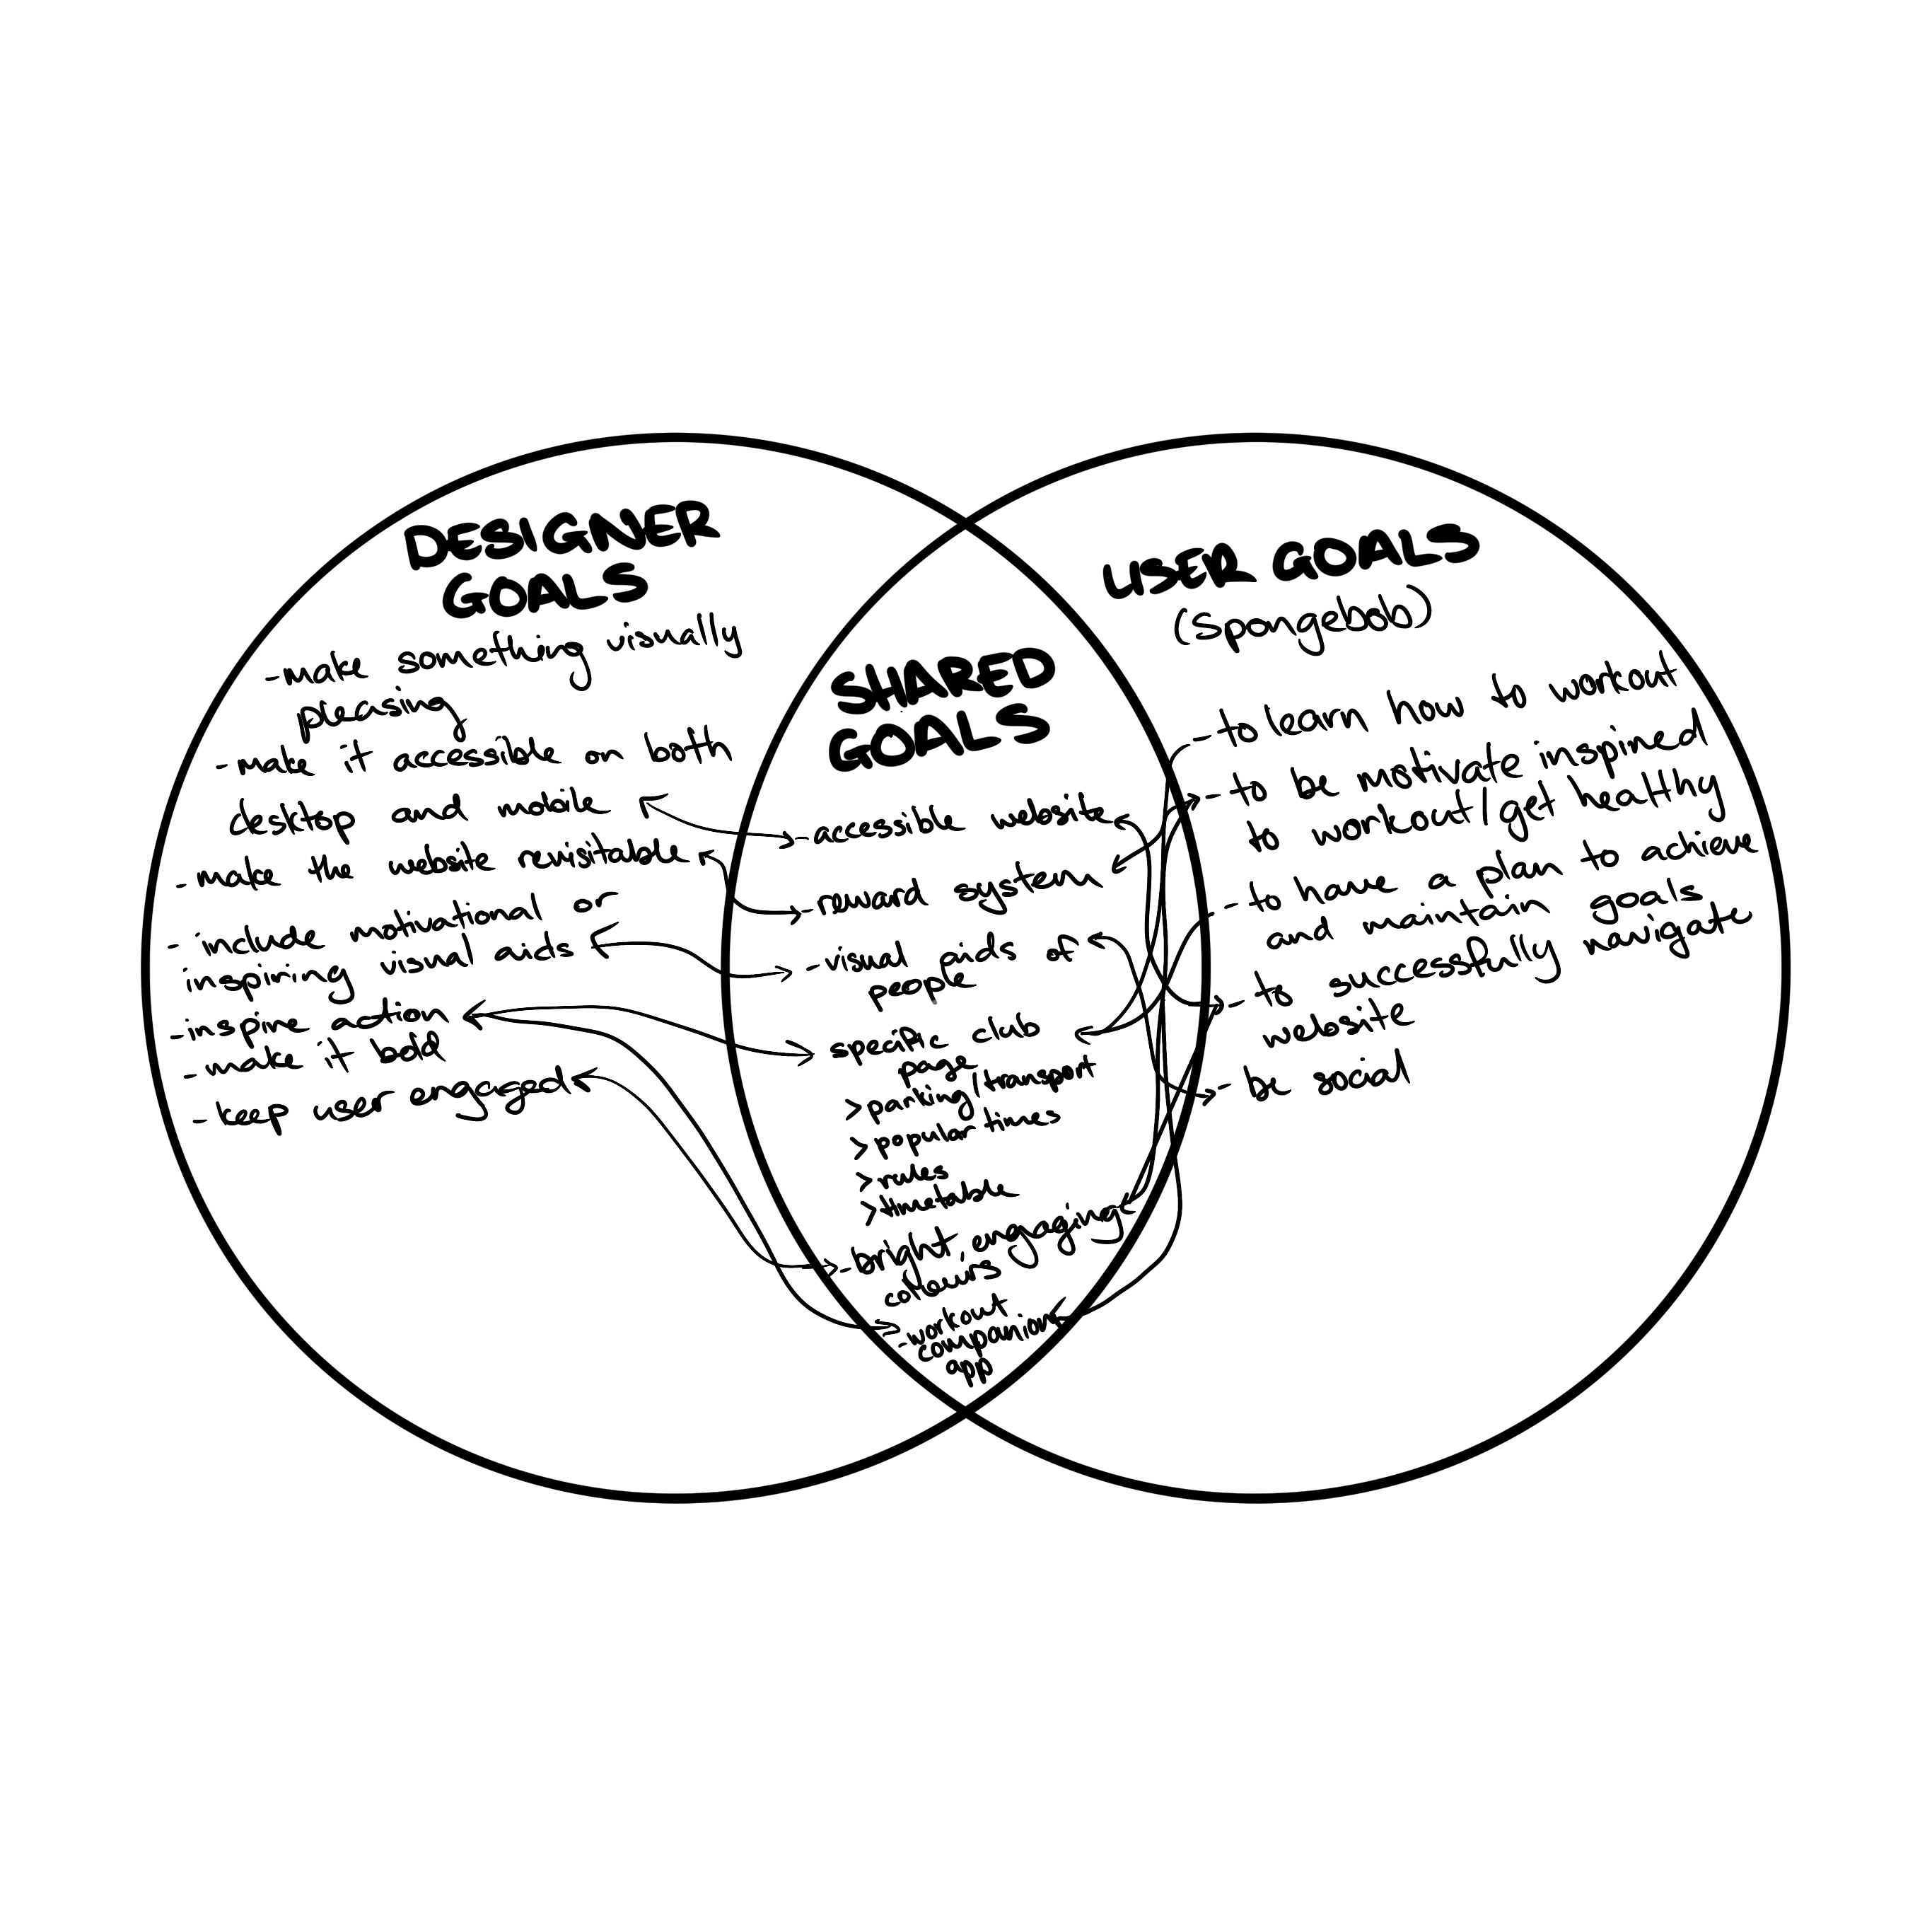 DESIGNER
GOALS
-make something visually
pleasing
- make it accessible on both
desktop and mobile
- make the website revisitable
- include motivational or
inspiring visual aids
- inspire action
- make it bold
- keep user engaged
SHARED
GOALS
- accessible website
- reward system
- visual aids of
people
specific club
page
> parking/transport
> popular times
> rules
> timetable
- bright, engaging
colours
- workout
companion
app
USER GOALS
(spongebob)
- to learn how to workout
- to be motivate inspired
to workout/get healthy
- to have a plan to achieve
and maintain goals
- to successfully navigate
website
- be social